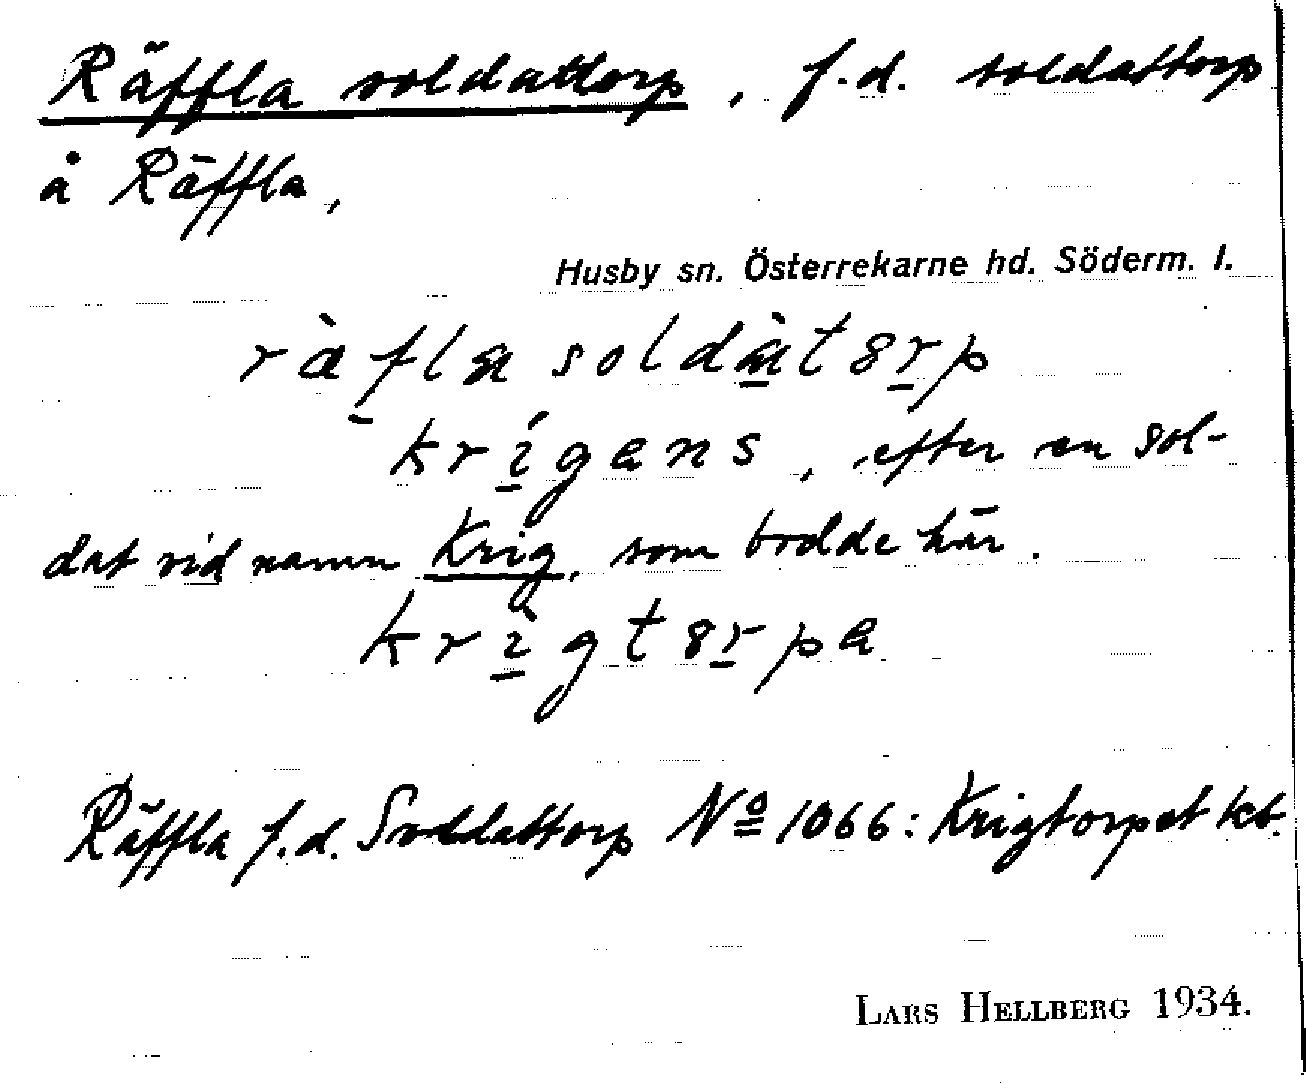 Räffla soldattorp, f.d. soldattorp
å Räffla,
Husby sn. Österrekarne hd. Söderm. l.
ràf̱la soldà̱t8ṟp
krí̱gens, efter en sol-
dat vid namn Krig, som bodde här.
krì̱gt8ṟpa
Räffla f.d. Soldattorp Nº 1066: Krigtorpet kb.
LARS HELLBERG 1934.